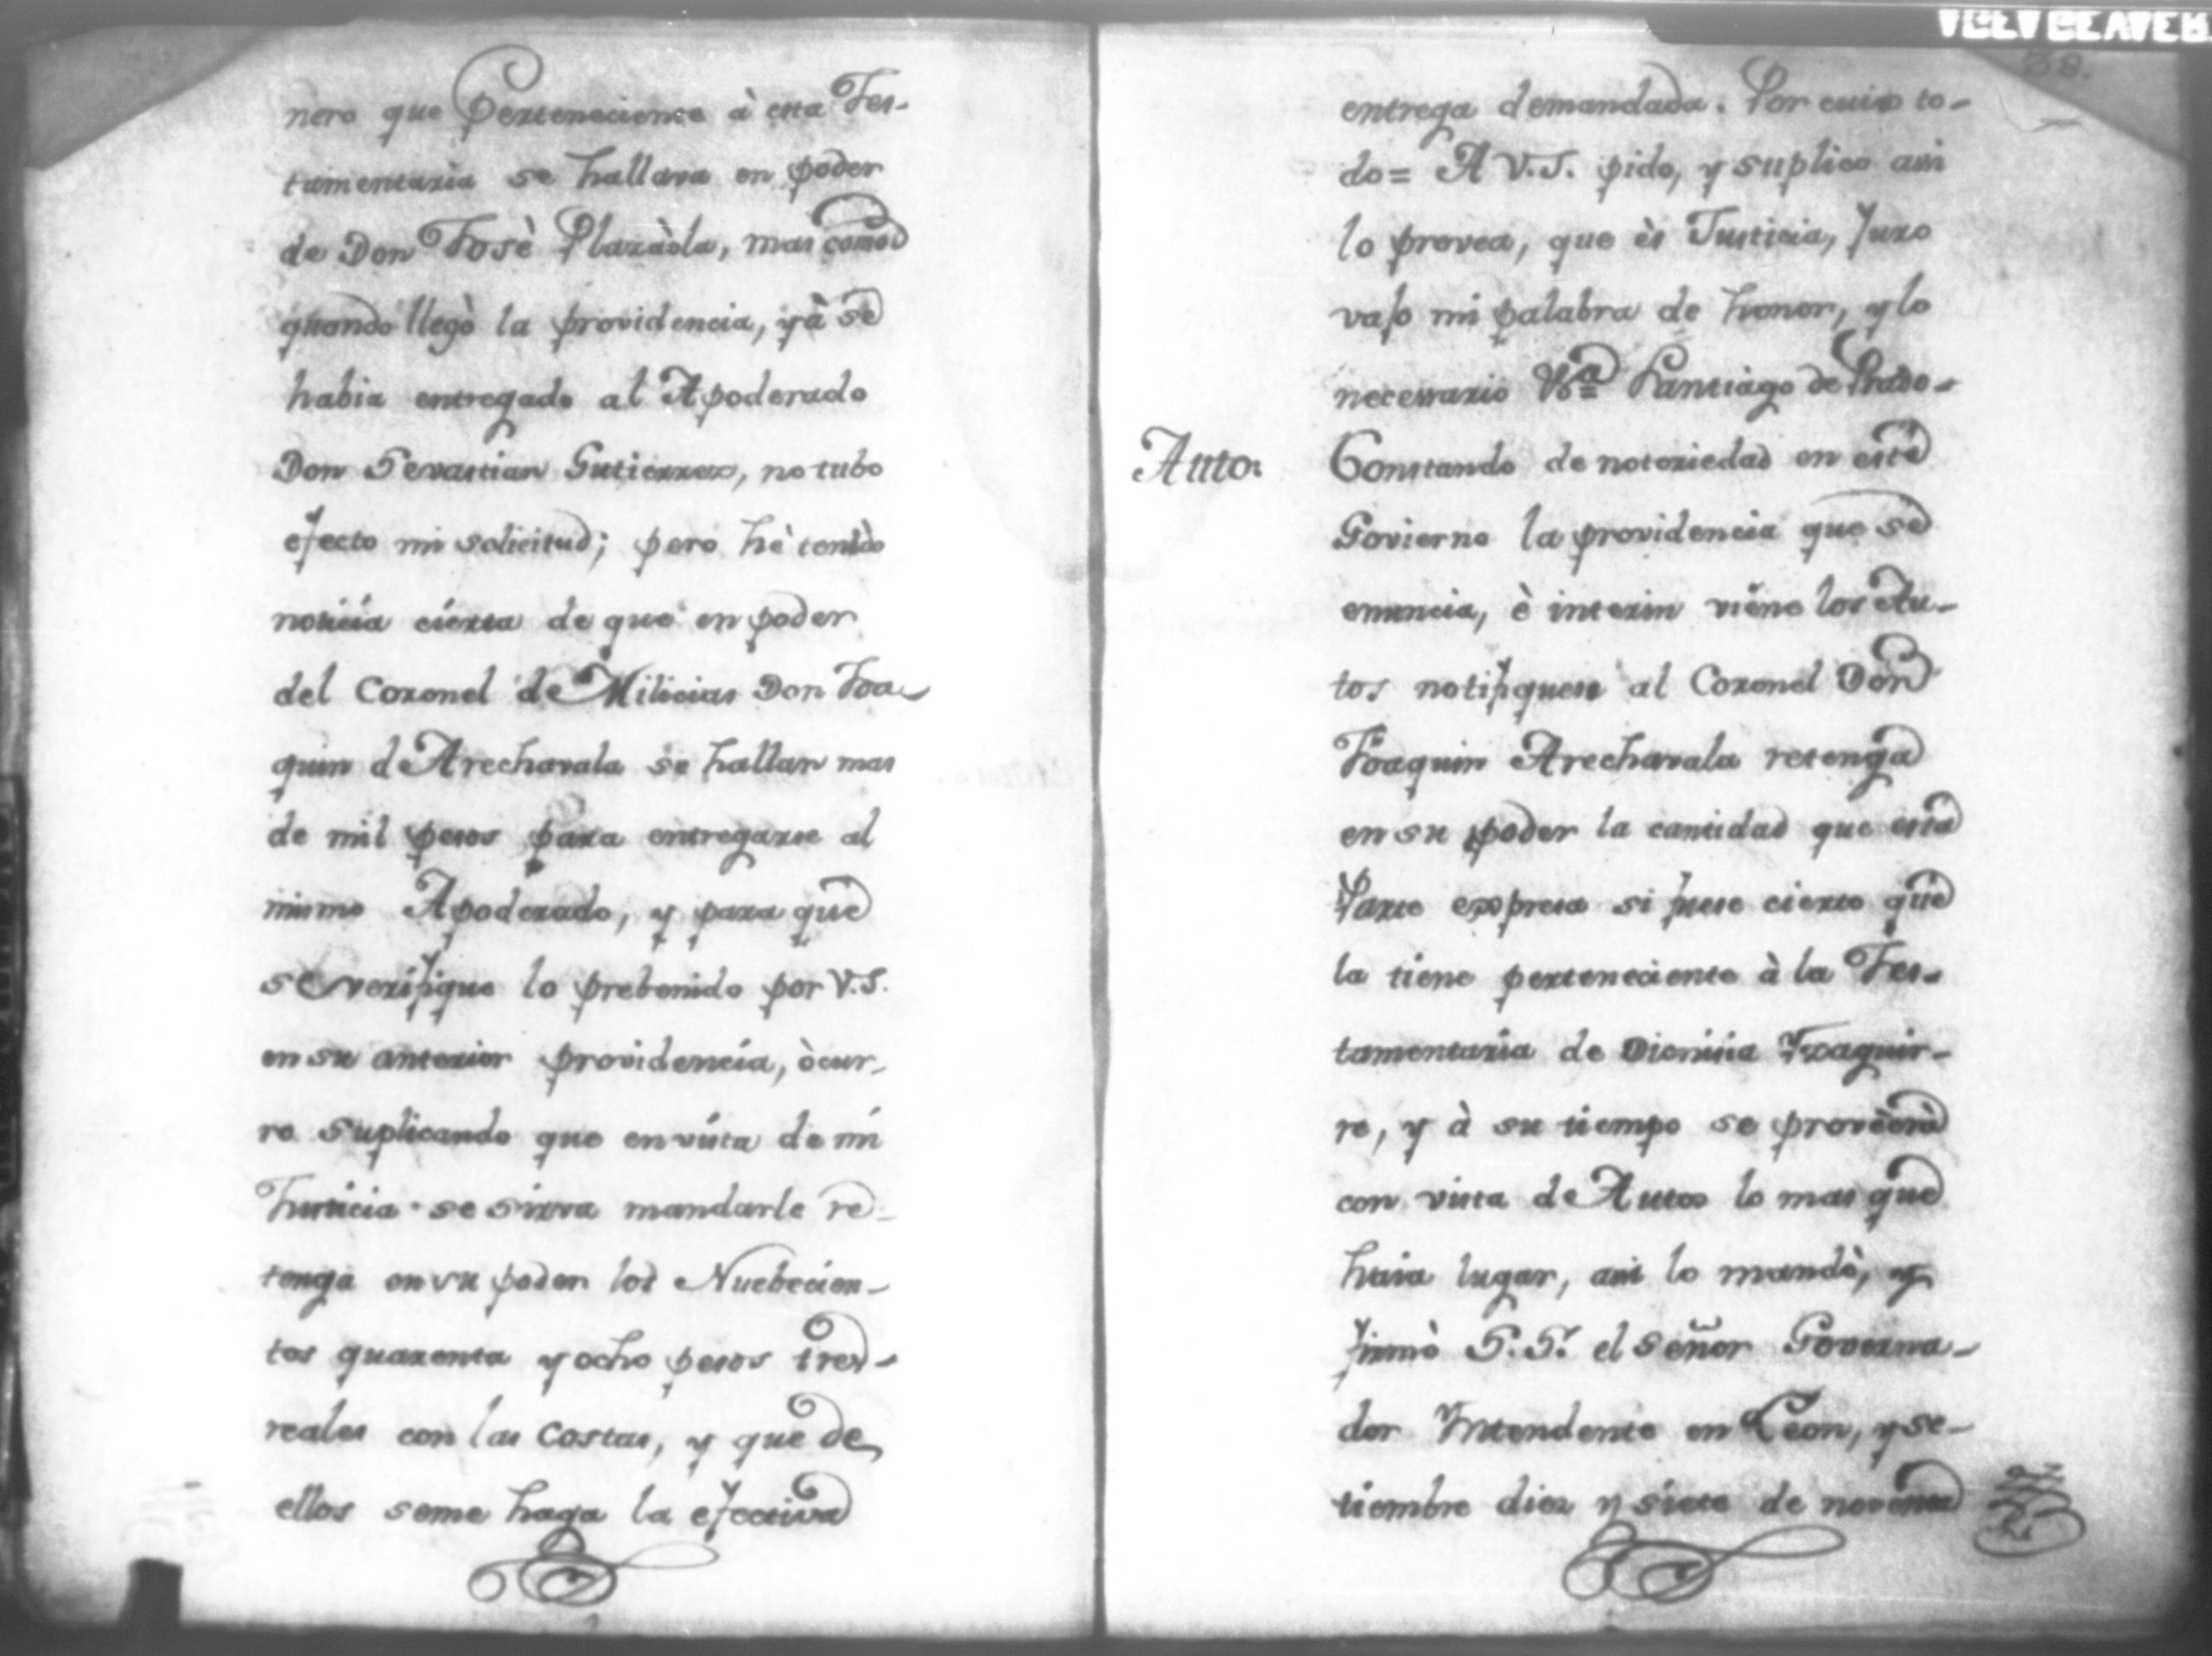 nero que Perteneciente à esta Tes-
tamentaria se hallava en poder
de Don Josè Plazàola, mas como
quando llegò la providencia, yà se
habia entregado al Apoderado
Don Sevastian Gutierrez, no tubo
efecto mi solicitud; pero hè tenido
noticia cierta de que en poder
del Coronel de Milicias Don Joa-
quin de Arechavala se hallan mas
de mil pesos para entregarse al
mismo Apoderado, y para que
se verifique lo prebenido por V.S.
en su anterior providencia, òcur-
ro suplicando que en vista de mi
Justicia se sirva mandarle re-
tenga en su poder los Nuebecien-
tos quarenta y ocho pesos tres
reales con las Costas, y que de
ellos seme haga la efectiva
38.
entrega demandada. Por cuio to-
do= A V.S. pido, y suplico asi
lo provea, que ès Justicia, Juro
vajo mi palabra de honor, y lo
necessario Santiago de Prado-
Auto. Constando de notoriedad en este
Govierno la providencia que se
enuncia, è interin viene los Au-
tos notifiquese al Coronel Don
Joaquin Arechavala retenga
en su poder la cantidad que esta
Parte expresa si fuese cierto que
la tiene perteneciente à la Tes-
tamentaria de Dionisia Yzaguir-
re, y à su tiempo se proveèrà
con vista de Autos lo mas que
haia lugar, asi lo mandò, y
firmò S.Sª. el Señor Governa-
dor Yntendente en Leon, y Se-
tiembre diez y siete de noventa